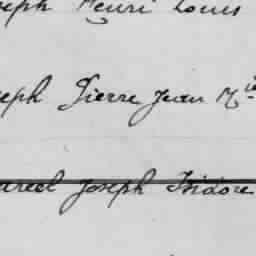 seph Henri Louis
seph Pierre Jean Mie
arcel Joseph Isidore